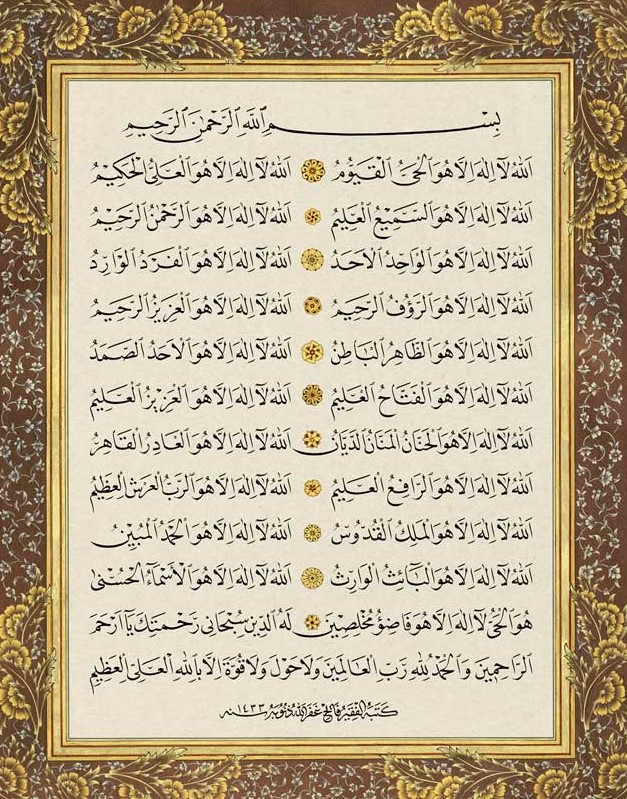 بِسْمِ اللهِ الرَّحْمٰنِ الرَّحِيمِ
اَللهُ لَآ اِلٰهَ اِلَّا هُوَ الْحَىُّ الْقَيُّومُ اَللهُ لَآ اِلٰهَ اِلَّا هُوَ الْعَلِىُّ الْحَكِيمُ
اَللهُ لَآ اِلٰهَ اِلَّا هُوَ السَّمِيعُ الْعَلِيمُ اَللهُ لَآ اِلٰهَ اِلَّا هُوَ الرَّحْمٰنُ الرَّحِيمُ
اَللهُ لَآ اِلٰهَ اِلَّا هُوَ الْوَاحِدُ الْاَحَدُ اَللهُ لَآ اِلٰهَ اِلَّا هُوَ الْفَرْدُ الْوَارِدُ
اَللهُ لَآ اِلٰهَ اِلَّا هُوَ الرَّؤُفُ الرَّحِيمُ اَللهُ لَآ اِلٰهَ اِلَّا هُوَ الْعَزِيزُ الرَّحِيمُ
اَللهُ لَآ اِلٰهَ اِلَّا هُوَ الظَّاهِرُ الْبَاطِنُ اَللهُ لَآ اِلٰهَ اِلَّا هُوَ الْاَحَدُ الصَّمَدُ
اَللهُ لَآ اِلٰهَ اِلَّا هُوَ الْفَتَّاحُ الْعَلِيمُ اَللهُ لَآ اِلٰهَ اِلَّا هُوَ الْعَزِيزُ الْعَلِيمُ
اَللهُ لَآ اِلٰهَ اِلَّا هُوَ الْحَنَّانُ الْمَنَّانُ الدَّيَّانُ اَللهُ لَآ اِلٰهَ اِلَّا هُوَ الْقَاهِرُ
اَللهُ لَآ اِلٰهَ اِلَّا هُوَ الرَّافِعُ الْعَلِيمُ اَللهُ لَآ اِلٰهَ اِلَّا هُوَ الرَّبُّ الْعَرْشِ الْعَظِيمُ
اَللهُ لَآ اِلٰهَ اِلَّا هُوَ الْمَلِكُ الْقُدُّوسُ اَللهُ لَآ اِلٰهَ اِلَّا هُوَ الْمُبِينُ
اَللهُ لَآ اِلٰهَ اِلَّا هُوَ الْوَارِثُ اَللهُ لَآ اِلٰهَ اِلَّا هُوَ الْاَسْمَآءُ الْحُسْنٰى
هُوَ الْحَىُّ لَآ اِلٰهَ اِلَّا هُوَ مُخْلِصِينَ لَهُ الدِّينَ سُبْحَانِى رَحْمَتِكَ يَآ اَرْحَمَ
الرَّاحِمِينَ وَالْحَمْدُ لِلّٰهِ رَبِّ الْعَالَمِينَ وَلَا حَوْلَ وَلَا قُوَّةَ اِلَّا بِاللهِ الْعَلِىِّ الْعَظِيمِ
كتبه الفقير غفر الله ذنوبه سنه ١٤٣٣